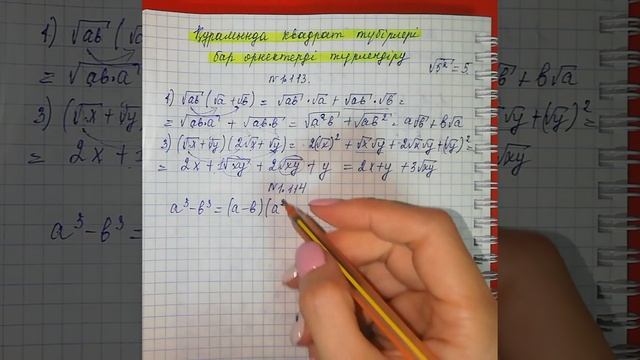 Құрамында квадрат түбірлері
бар өрнектерді түрлендіру
√5² = 5.
№1.113.
1) √ab (√a + √b) = √ab · √a + √ab · √b =
= √ab·a + √ab·b = √a²b + √ab² = a√b + b√a
3) (√x + √y)(2√x + √y) = 2(√x)² + √x√y + 2√x√y + (√y)² =
= 2x + 1√xy + 2√xy + y = 2x + y + 3√xy
№1.114
a³ - b³ = (a - b)(a²